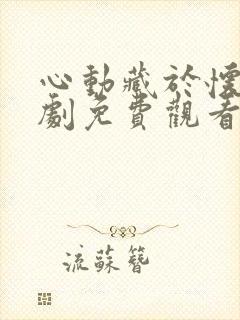 心動藏於懷
劇免費觀看
流蘇簪